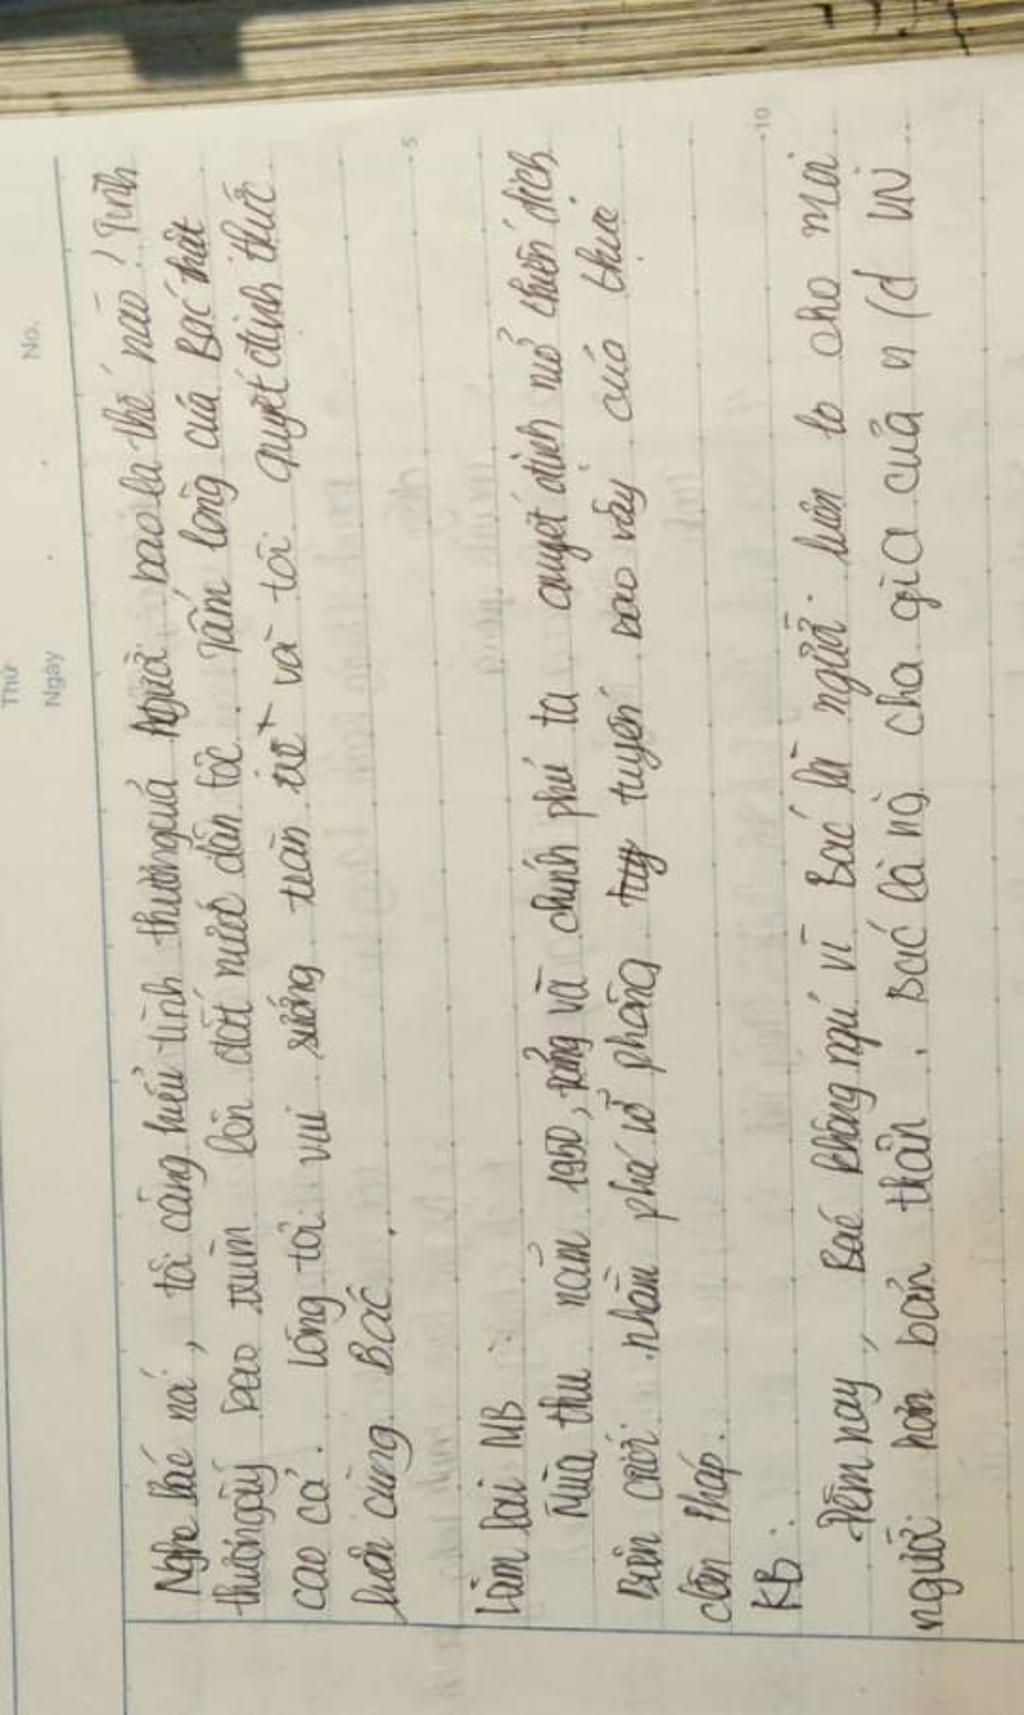 Thứ
Ngày No.
Nghe Bác nói, tôi càng hiểu tình thương của người bao la thế nào! Tình
thương ấy bao trùm lên đất nước dân tộc. Tấm lòng của Bác thật
cao cả. lòng tôi vui sướng tràn và tôi quyết định thức
luôn cùng Bác.
5
Làm lại MB:
Mùa thu năm 1950, Đảng và chính phủ ta quyết định mở chiến dịch
Biên giới nhằm phá vỡ phòng tuyến bao vây của thực
dân Pháp.
10
KB:
Đêm nay, Bác không ngủ vì Bác là người luôn lo cho mọi
người hơn bản thân. Bác là ng cha già của